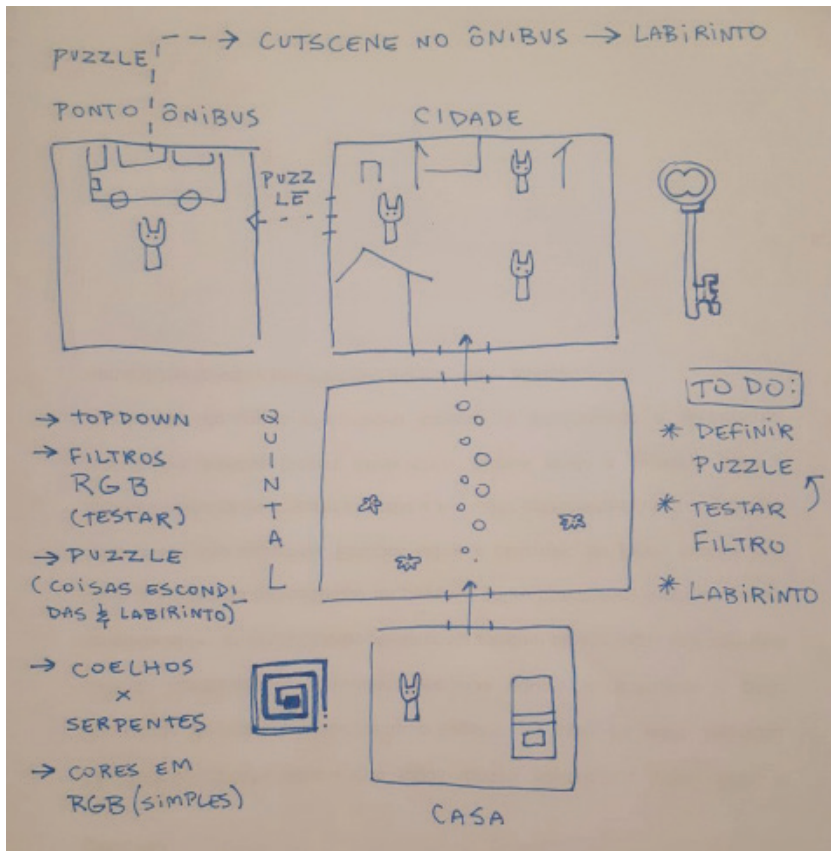 PUZZLE
CUTSCENE NO ÔNIBUS → LABIRINTO
PONTO ÔNIBUS
CIDADE
PUZZ
LE
QUINTAL
→ TOPDOWN
→ FILTROS
RGB
(TESTAR)
→ PUZZLE
(COISAS ESCONDI_
DAS & LABIRINTO)
→ COELHOS
x
SERPENTES
→ CORES EM
RGB (SIMPLES)
TO DO:
* DEFINIR
PUZZLE
* TESTAR
FILTRO
* LABIRINTO
CASA